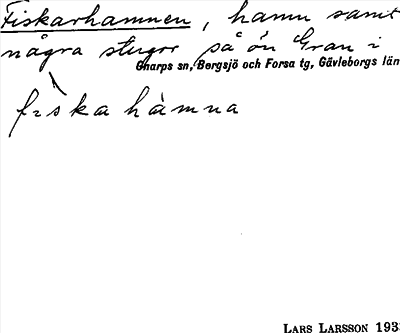 Fiskarhamnen, hamn samt
några stugor på ön Gran i
Gnarps sn, Bergsjö och Forsa tg, Gävleborgs län
fiskahàmna
LARS LARSSON 193